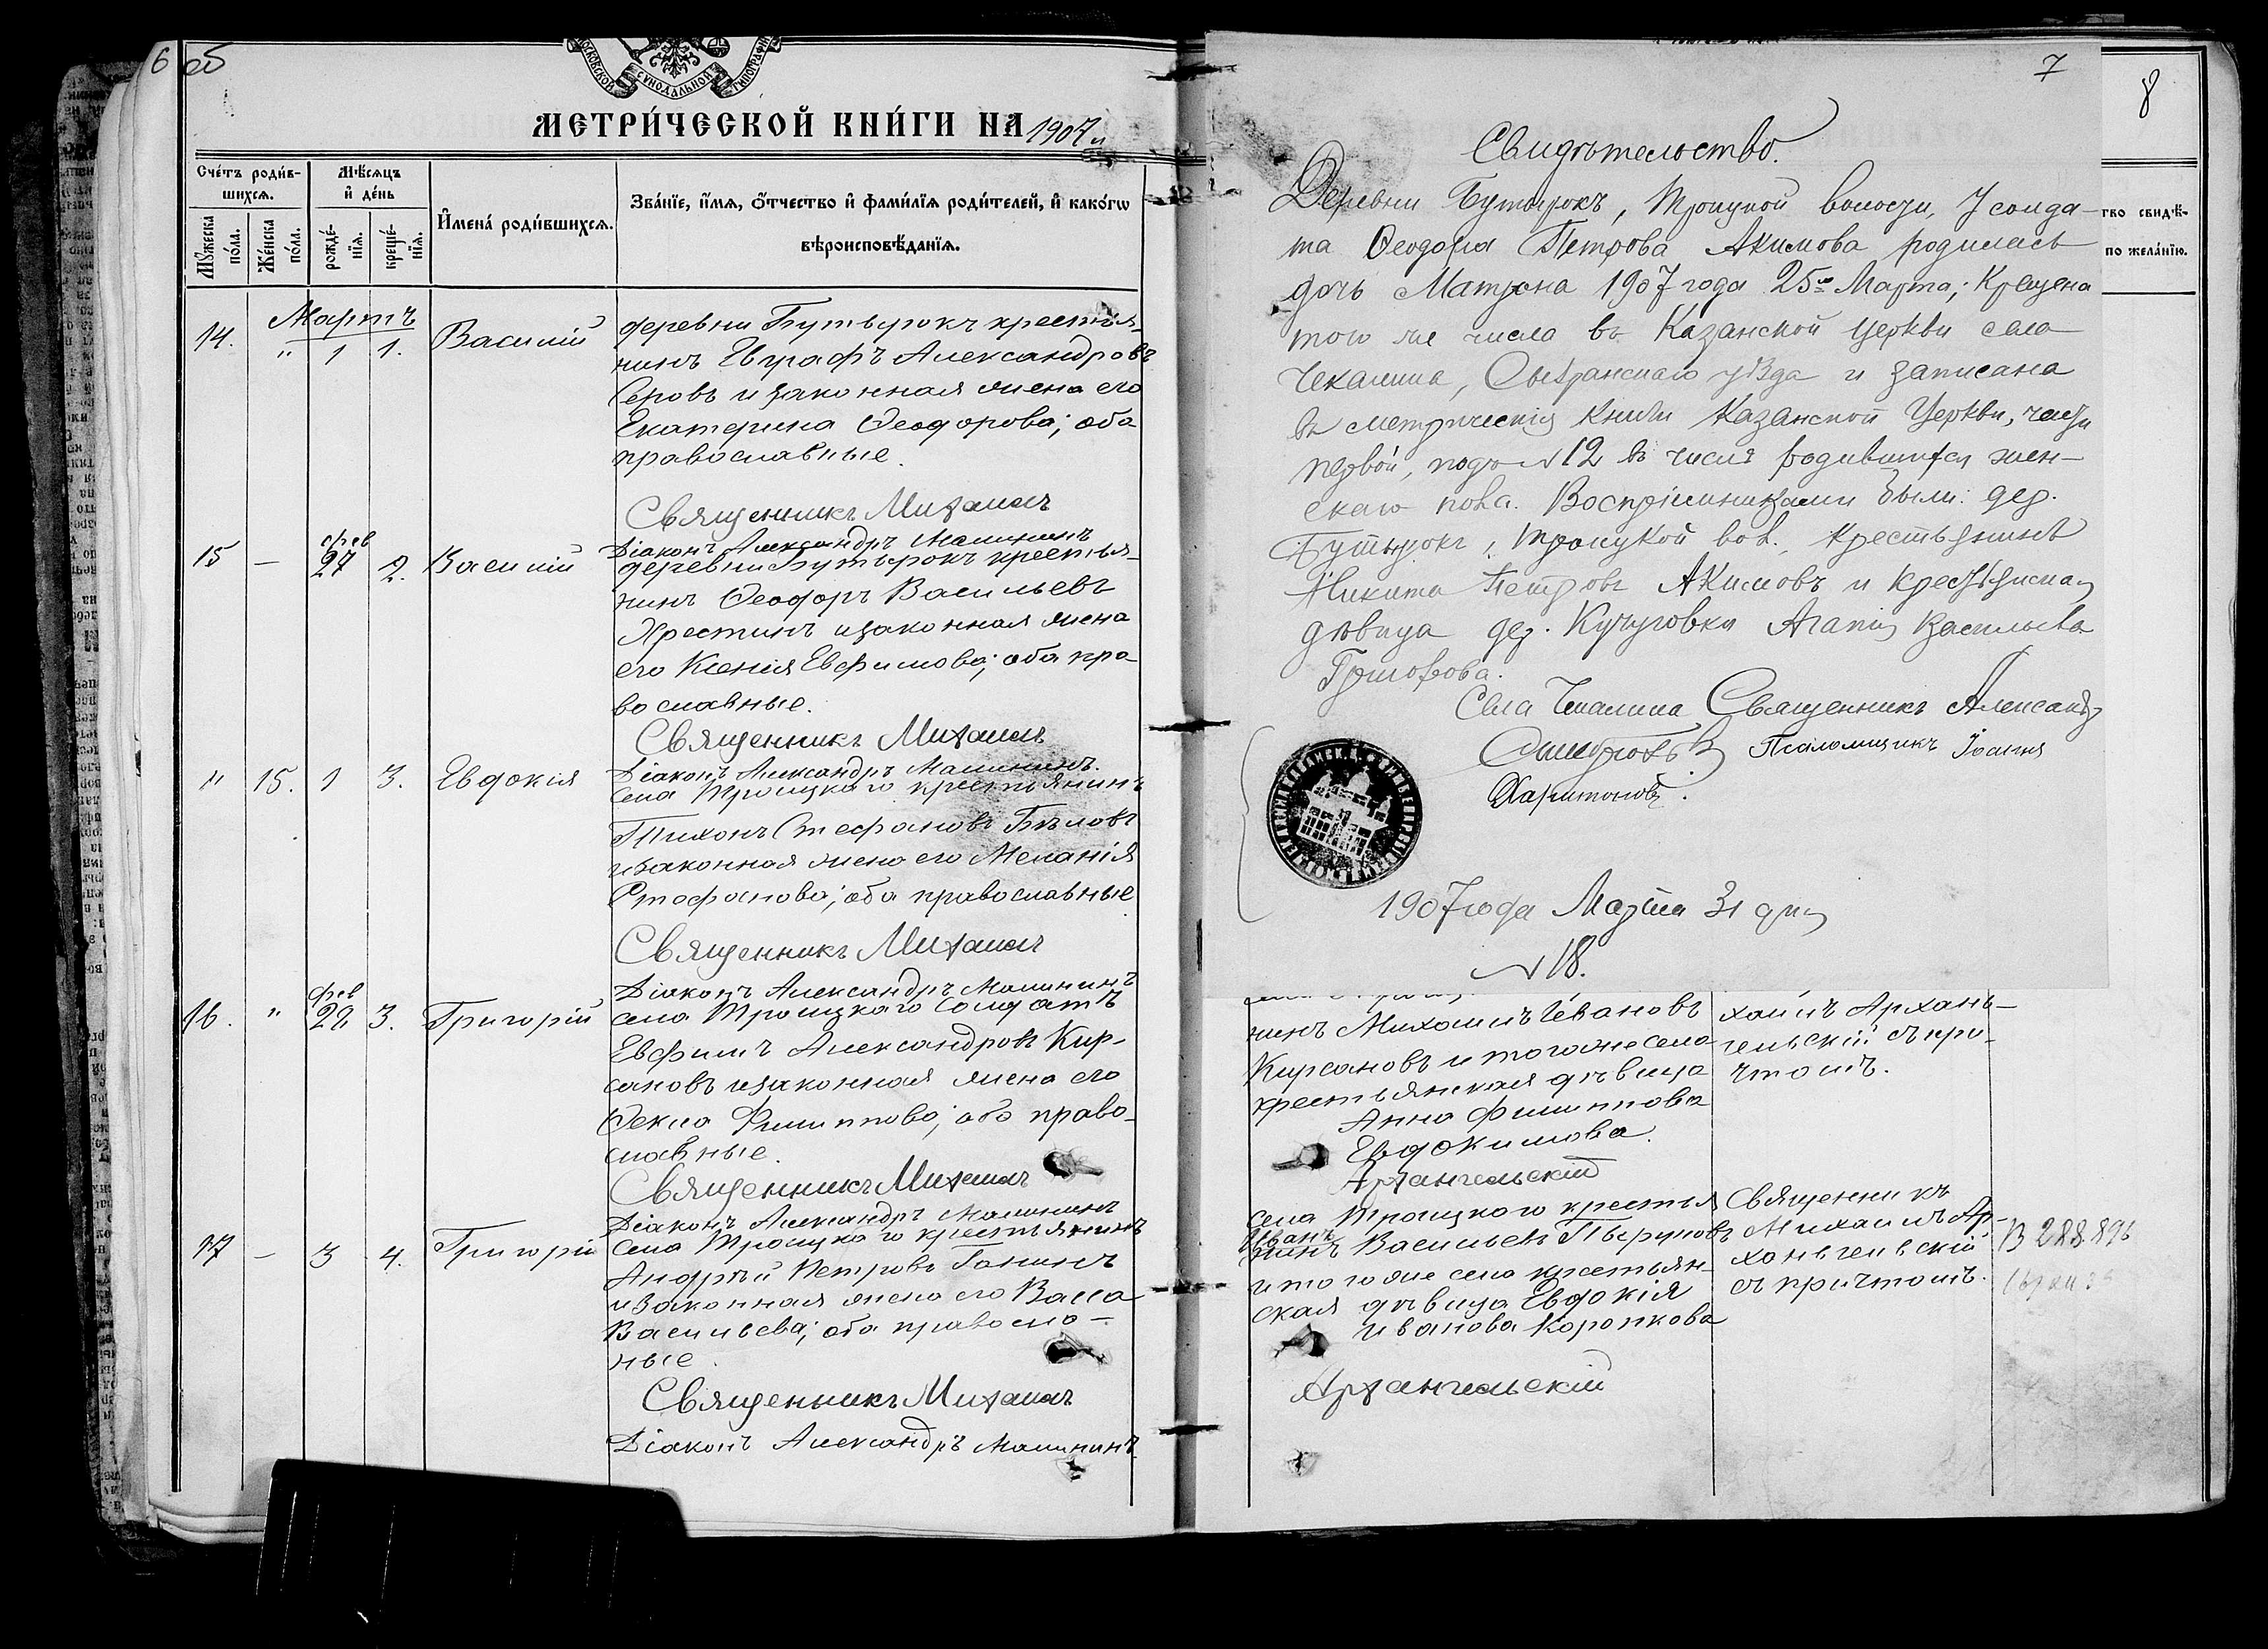 6 об
МОСКОВСКОЙ СУНОДАЛЬНОЙ ТИПОГРАФІИ
МЕТРИ́ЧЕСКОЙ КНИ́ГИ НА 1907 г.
Сче́тъ роди́в-
шихсѧ.
Мꙋ́жеска по́ла.
Же́нска по́ла.
Мѣ́сѧцъ и҆ де́нь
рожде́-нїѧ.
креще́-нїѧ.
И҆мена̀ роди́вшихсѧ.
Зва́нїе, и҆́мѧ, ѻ҆́тчество и҆ фами́лїѧ роди́телей, и҆ како́гѡ
вѣроисповѣ́данїѧ.
Мартъ
14. " 1 1. Василій
деревни Бутырокъ крестья-
нинъ Евграфъ Александровъ
Серовъ и законная жена его
Екатерина Ѳеодорова; оба
православные.
Священникъ Михаилъ
Діаконъ Александръ Малининъ
15 — фев 27 2. Василій
деревни Бутырокъ крестья-
нинъ Ѳеодоръ Васильевъ
Хрестинъ и законная жена
его Ксенія Евфимова; оба пра-
вославные.
Священникъ Михаилъ
Діаконъ Александръ Малининъ.
" 15. 1 3. Евдокія
села Троицкаго крестьянинъ
Тихонъ Стефановъ Бѣловъ
и законная жена его Меланія
Стефанова; оба православные
Священникъ Михаилъ
Діаконъ Александръ Малининъ
16. " фев 22 3. Григорій
села Троицкаго солдатъ
Евфимъ Александровъ Кир-
сановъ и законная жена его
Ѳекла Филиппова; оба право-
славные.
Священникъ Михаилъ
Діаконъ Александръ Малининъ
17 — 3 4. Григорій
села Троицкаго крестьянинъ
Андрей Петровъ Ганинъ
и законная жена его Васса
Васильева; оба правосла-
ные.
Священникъ Михаилъ
Діаконъ Александръ Малининъ
7
8
Свидѣтельство.
Деревни Бутырокъ, Троицкой волости, у солда-
та Ѳеодора Петрова Акимова родилась
дочь Матрона 1907 года 25го Марта; Крещена
того же числа въ Казанской церкви села
Чекалина, Сызранскаго уѣзда и записана
въ метрическія книги Казанской Церкви, части
первой, подъ № 12 въ числѣ родившихся жен-
скаго пола. Воспріемниками были: дер.
Бутырокъ, Троицкой вол., крестьянинъ
Никита Петровъ Акимовъ и крестьянская
дѣвица дер. Кучуговки Агапія Васильева
Григорова.
Села Чекалина Священникъ Александръ
Псаломщикъ Іоаннъ
Харитоновъ.
1907 года Марта 31 дня
№ 18.
тво свидѣ-
по жела́нїю.
нинъ Михаилъ Ивановъ
Кирсановъ и того же села
крестьянская дѣвица
Анна Филиппова
Евдокимова.
Архангельскій
хаилъ Архань-
гельскій съ при-
чтомъ.
села Троицкаго крестья
Иванъ
нинъ Васильевъ Перуновъ
и того же села крестьян-
ская дѣвица Евдокія
Иванова Коропкова
Архангельскій
Священникъ
Михаилъ Ар-
хангельскій
съ причтомъ.
В 288896